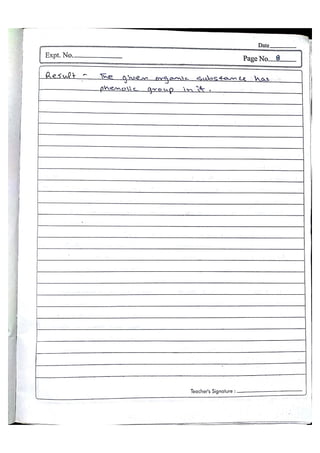 Date
Expt. No.
Page No. 8
Result - The given organic substance has
phenolic group in it.
Teacher's Signature :